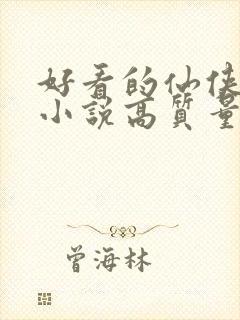 好看的仙侠
小说高质量
曾海林